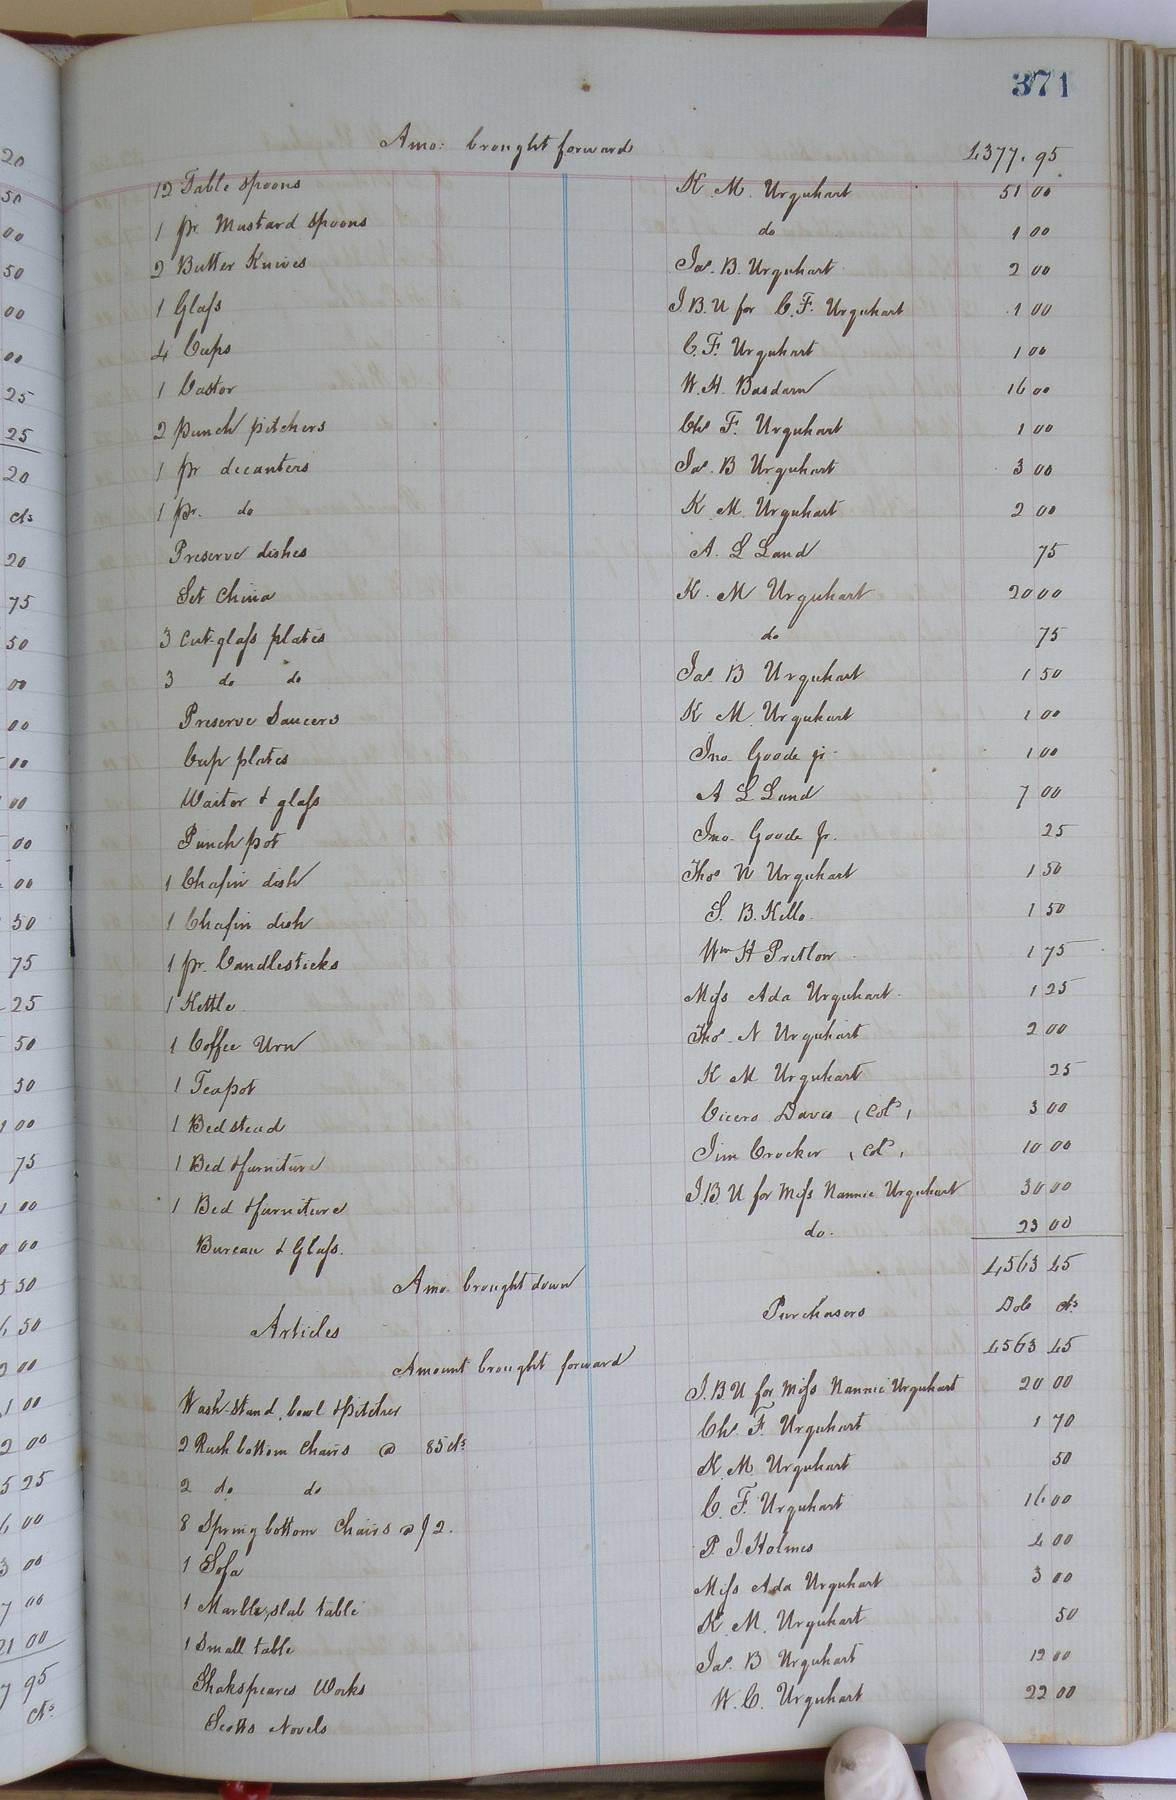 371
Amo: brought forward 4377.95
12 Table spoons K. M. Urquhart 51 00
1 pr. Mustard spoons do 1 00
2 Butter Knives Jas. B. Urquhart 2 00
1 Glass J. B. U for C. F. Urquhart 1 00
4 Cups C. F. Urquhart 1 00
1 Castor W. H. 16 00
2 punch pitchers Chs F. Urquhart 1 00
1 pr decanters Jas. B Urquhart 3 00
1 pr. do K. M. Urquhart 2 00
Preserve dishes A. L Land 75
Set China K. M Urquhart 20 00
3 cut-glass plates do 75
3 do do Jas. B Urquhart 1 50
Preserve Saucers K M. Urquhart 1 00
Cup plates Jno. Goode jr 1 00
Waitor & glass A L Land 7 00
Punch pot Jno. Goode Jr. 25
1 Chafin dish Thos N Urquhart 1 50
1 Chafin dish S. B. Kello 1 50
1 pr. Candlesticks Wm H Pretlow 1 75
1 Kettle Miss Ada Urquhart 1 25
1 Coffee Urn Thos. N Urquhart 2 00
1 Teapot K M Urquhart 25
1 Bedstead Cicero Davis (Cold) 3 00
1 Bed & furniture Jim Crocker (Cold) 10 00
1 Bed & furniture J. B. U for Miss Nannie Urquhart 30 00
Bureau & Glass. do. 23 00
Amo. brought down 4563 45
Articles Purchasers Dols cts
Amount brought forward 4563 45
Wash-stand, bowl & pitcher J. B U for Miss Nannie Urquhart 20 00
2 Rush bottom Chairs @ 85 cts Chs. F. Urquhart 1 70
2 do do K. M Urquhart 50
8 Spring bottom Chairs @ $2. C. F. Urquhart 16 00
1 Sofa P. J Holmes 4 00
1 Marble slab table Miss Ada Urquhart 3 00
1 Small table K. M. Urquhart 50
Shakspeares Works Jas. B Urquhart 12 00
Scotts Novels W. C. Urquhart 22 00